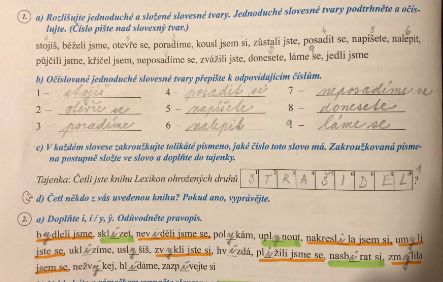 1. a) Rozlišujte jednoduché a složené slovesné tvary. Jednoduché slovesné tvary podtrhněte a očís-
lujte. (Číslo pište nad slovesný tvar.)
stojíš, běželi jsme, otevře se, poradíme, kousl jsem si, zůstali jste, posadit se, napíšete, nalepit,
půjčili jsme, křičel jsem, neposadíme se, zvážili jste, donesete, láme se, jedli jsme
b) Očíslované jednoduché slovesné tvary přepište k odpovídajícím číslům.
1 – stojíš 4 – posadit se 7 – neposadíme se
2 – otevře se 5 – napíšete 8 – donesete
3 – poradíme 6 – nalepit 9 – láme se
c) V každém slovese zakroužkujte tolikáté písmeno, jaké číslo toto slovo má. Zakroužkovaná písme-
na postupně složte ve slovo a doplňte do tajenky.
Tajenka: Četli jste knihu Lexikon ohrožených druhů S T R A Š I D E L ?
d) Četl někdo z vás uvedenou knihu? Pokud ano, vyprávějte.
2. a) Doplňte i, í / y, ý. Odůvodněte pravopis.
bydleli jsme, sklízet, neviděli jsme se, polykám, uplynout, nakreslila jsem si, umyli
jste se, uklízíme, uslyšíš, zvykli jste si, hvízdá, plížili jsme se, nasbírat si, zmýlila
jsem se, nežvýkej, hlídáme, zazpívejte si